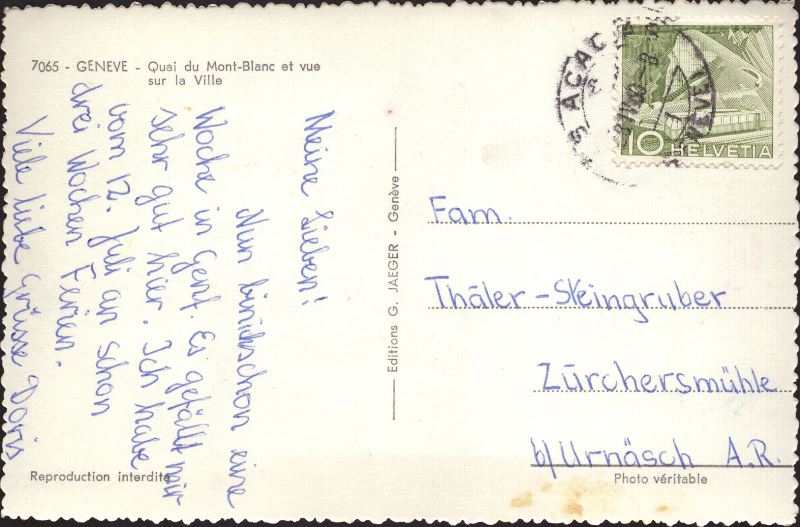 7065 - GENEVE - Quai du Mont-Blanc et vue
sur la Ville
Meine Lieben!
Nun bin ich schon eine
Woche in Genf. Es gefällt mir
sehr gut hier. Ich habe
vom 12. Juli an schon
drei Wochen Ferien.
Viele liebe Grüsse Doris
Reproduction interdite
Editions G. JAEGER - Genève
10 HELVETIA
Fam.
Thäler-Steingruber
Zürchersmühle
b/Urnäsch A.R.
Photo véritable